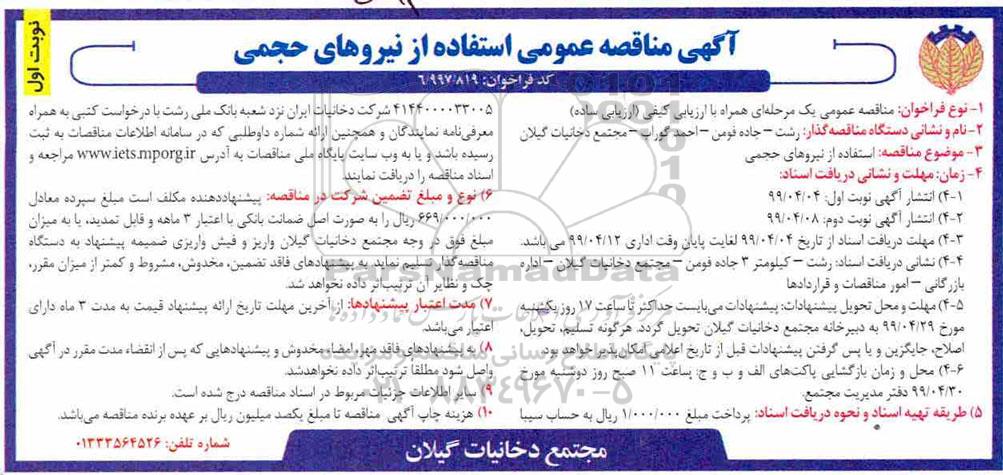 نوبت اول
آگهی مناقصه عمومی استفاده از نیروهای حجمی
کد فراخوان: ۶/۹۹۷/۸۱۹
۱- نوع فراخوان: مناقصه عمومی یک مرحله‌ای همراه با ارزیابی کیفی (ارزیابی ساده)
۲- نام و نشانی دستگاه مناقصه‌گذار: رشت – جاده فومن – احمد گوراب – مجتمع دخانیات گیلان
۳- موضوع مناقصه: استفاده از نیروهای حجمی
۴- زمان: مهلت و نشانی دریافت اسناد:
۴-۱) انتشار آگهی نوبت اول: ۹۹/۰۴/۰۴
۴-۲) انتشار آگهی نوبت دوم: ۹۹/۰۴/۰۸
۴-۳) مهلت دریافت اسناد از تاریخ ۹۹/۰۴/۰۴ لغایت پایان وقت اداری ۹۹/۰۴/۱۲ می باشد.
۴-۴) نشانی دریافت اسناد: رشت – کیلومتر ۳ جاده فومن – مجتمع دخانیات گیلان – اداره
بازرگانی – امور مناقصات و قراردادها
۴-۵) مهلت و محل تحویل پیشنهادات: پیشنهادات می‌بایست حداکثر تا ساعت ۱۷ روز یکشنبه
مورخ ۹۹/۰۴/۲۹ به دبیرخانه مجتمع دخانیات گیلان تحویل گردد. هرگونه تسلیم، تحویل،
اصلاح، جایگزین و یا پس گرفتن پیشنهادات قبل از تاریخ اعلامی امکان‌پذیر خواهد بود.
۴-۶) محل و زمان بازگشایی پاکت‌های الف و ب و ج: ساعت ۱۱ صبح روز دوشنبه مورخ
۹۹/۰۴/۳۰ دفتر مدیریت مجتمع.
۵) طریقه تهیه اسناد و نحوه دریافت اسناد: پرداخت مبلغ ۱/۰۰۰/۰۰۰ ریال به حساب سیبا
۴۱۴۴۰۰۰۰۳۳۰۰۵ شرکت دخانیات ایران نزد شعبه بانک ملی رشت با درخواست کتبی به همراه
معرفی‌نامه نمایندگان و همچنین ارائه شماره داوطلبی که در سامانه اطلاعات مناقصات به ثبت
رسیده باشد و یا به وب سایت پایگاه ملی مناقصات به آدرس www.iets.mporg.ir مراجعه و
اسناد مناقصه را دریافت نمایند.
۶) نوع و مبلغ تضمین شرکت در مناقصه: پیشنهاددهنده مکلف است مبلغ سپرده معادل
۶۶۹/۰۰۰/۰۰۰ ریال را به صورت اصل ضمانت بانکی با اعتبار ۳ ماهه و قابل تمدید، یا به میزان
مبلغ فوق در وجه مجتمع دخانیات گیلان واریز و فیش واریزی ضمیمه پیشنهاد به دستگاه
مناقصه‌گذار تسلیم نماید. به پیشنهادهای فاقد تضمین، مخدوش، مشروط و کمتر از میزان مقرر،
چک و نظایر آن ترتیب‌اثر داده نخواهد شد.
۷) مدت اعتبار پیشنهادها: از آخرین مهلت تاریخ ارائه پیشنهاد قیمت به مدت ۳ ماه دارای
اعتبار می‌باشد.
۸) به پیشنهادهای فاقد مهر، امضاء، مخدوش و پیشنهادهایی که پس از انقضاء مدت مقرر در آگهی
واصل شود مطلقا ترتیب‌اثر داده نخواهدشد.
۹) سایر اطلاعات جزئیات مربوط در اسناد مناقصه درج شده است.
۱۰) هزینه چاپ آگهی مناقصه تا مبلغ یکصد میلیون ریال بر عهده برنده مناقصه می‌باشد.
شماره تلفن: ۰۱۳۳۳۵۶۴۵۲۶
مجتمع دخانیات گیلان
ParsNamadData
۰۲۱-۸۸۳۴۹۶۷۰-۵